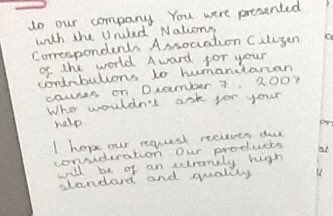 to our company You were presented
with the United Nations
Correspondents Association Citizen
of the world Award for your
contributions to humanitarian
causes on December 7, 2007
Who wouldn't ask for your
help.
I hope our request recieves due
consideration Our products
will be of an extremely high
standard and quality